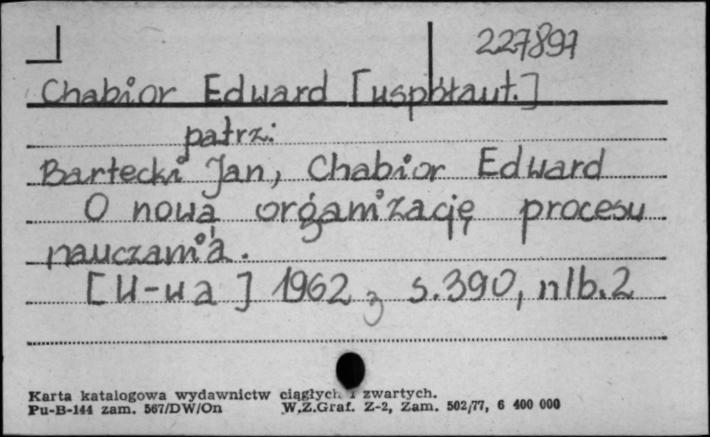 227897
Chabior Edward [współaut.]
patrz:
Bartecki Jan, Chabior Edward
O nową organizację procesu
nauczania.
[W-wa] 1962 s. 390, nlb. 2
Karta katalogowa wydawnictw ciągłych i zwartych.
Pu-B-144 zam. 567/DW/On W.Z.Graf. Z-2, Zam. 502/77, 6 400 000